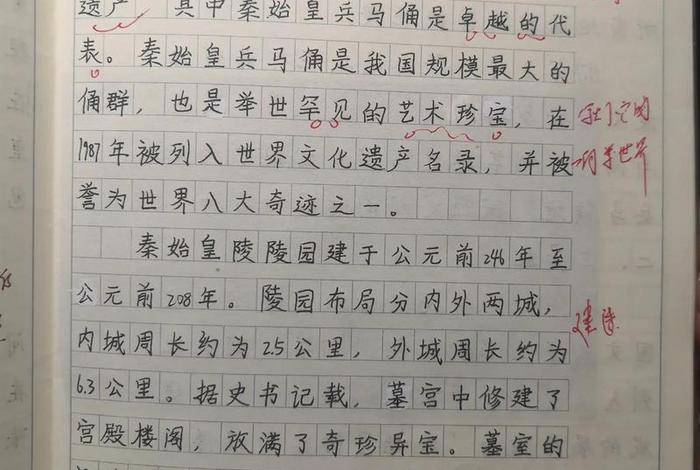 遗产，其中秦始皇兵马俑是卓越的代
表。秦始皇兵马俑是我国规模最大的
俑群，也是举世罕见的艺术珍宝，在
1987年被列入世界文化遗产名录，并被
誉为世界八大奇迹之一。
秦始皇陵陵园建于公元前246年至
公元前208年。陵园布局分内外两城，
内城周长约为2.5公里，外城周长约为
6.3公里。据史书记载，墓宫中修建了
宫殿楼阁，放满了奇珍异宝。墓室的
世界
建